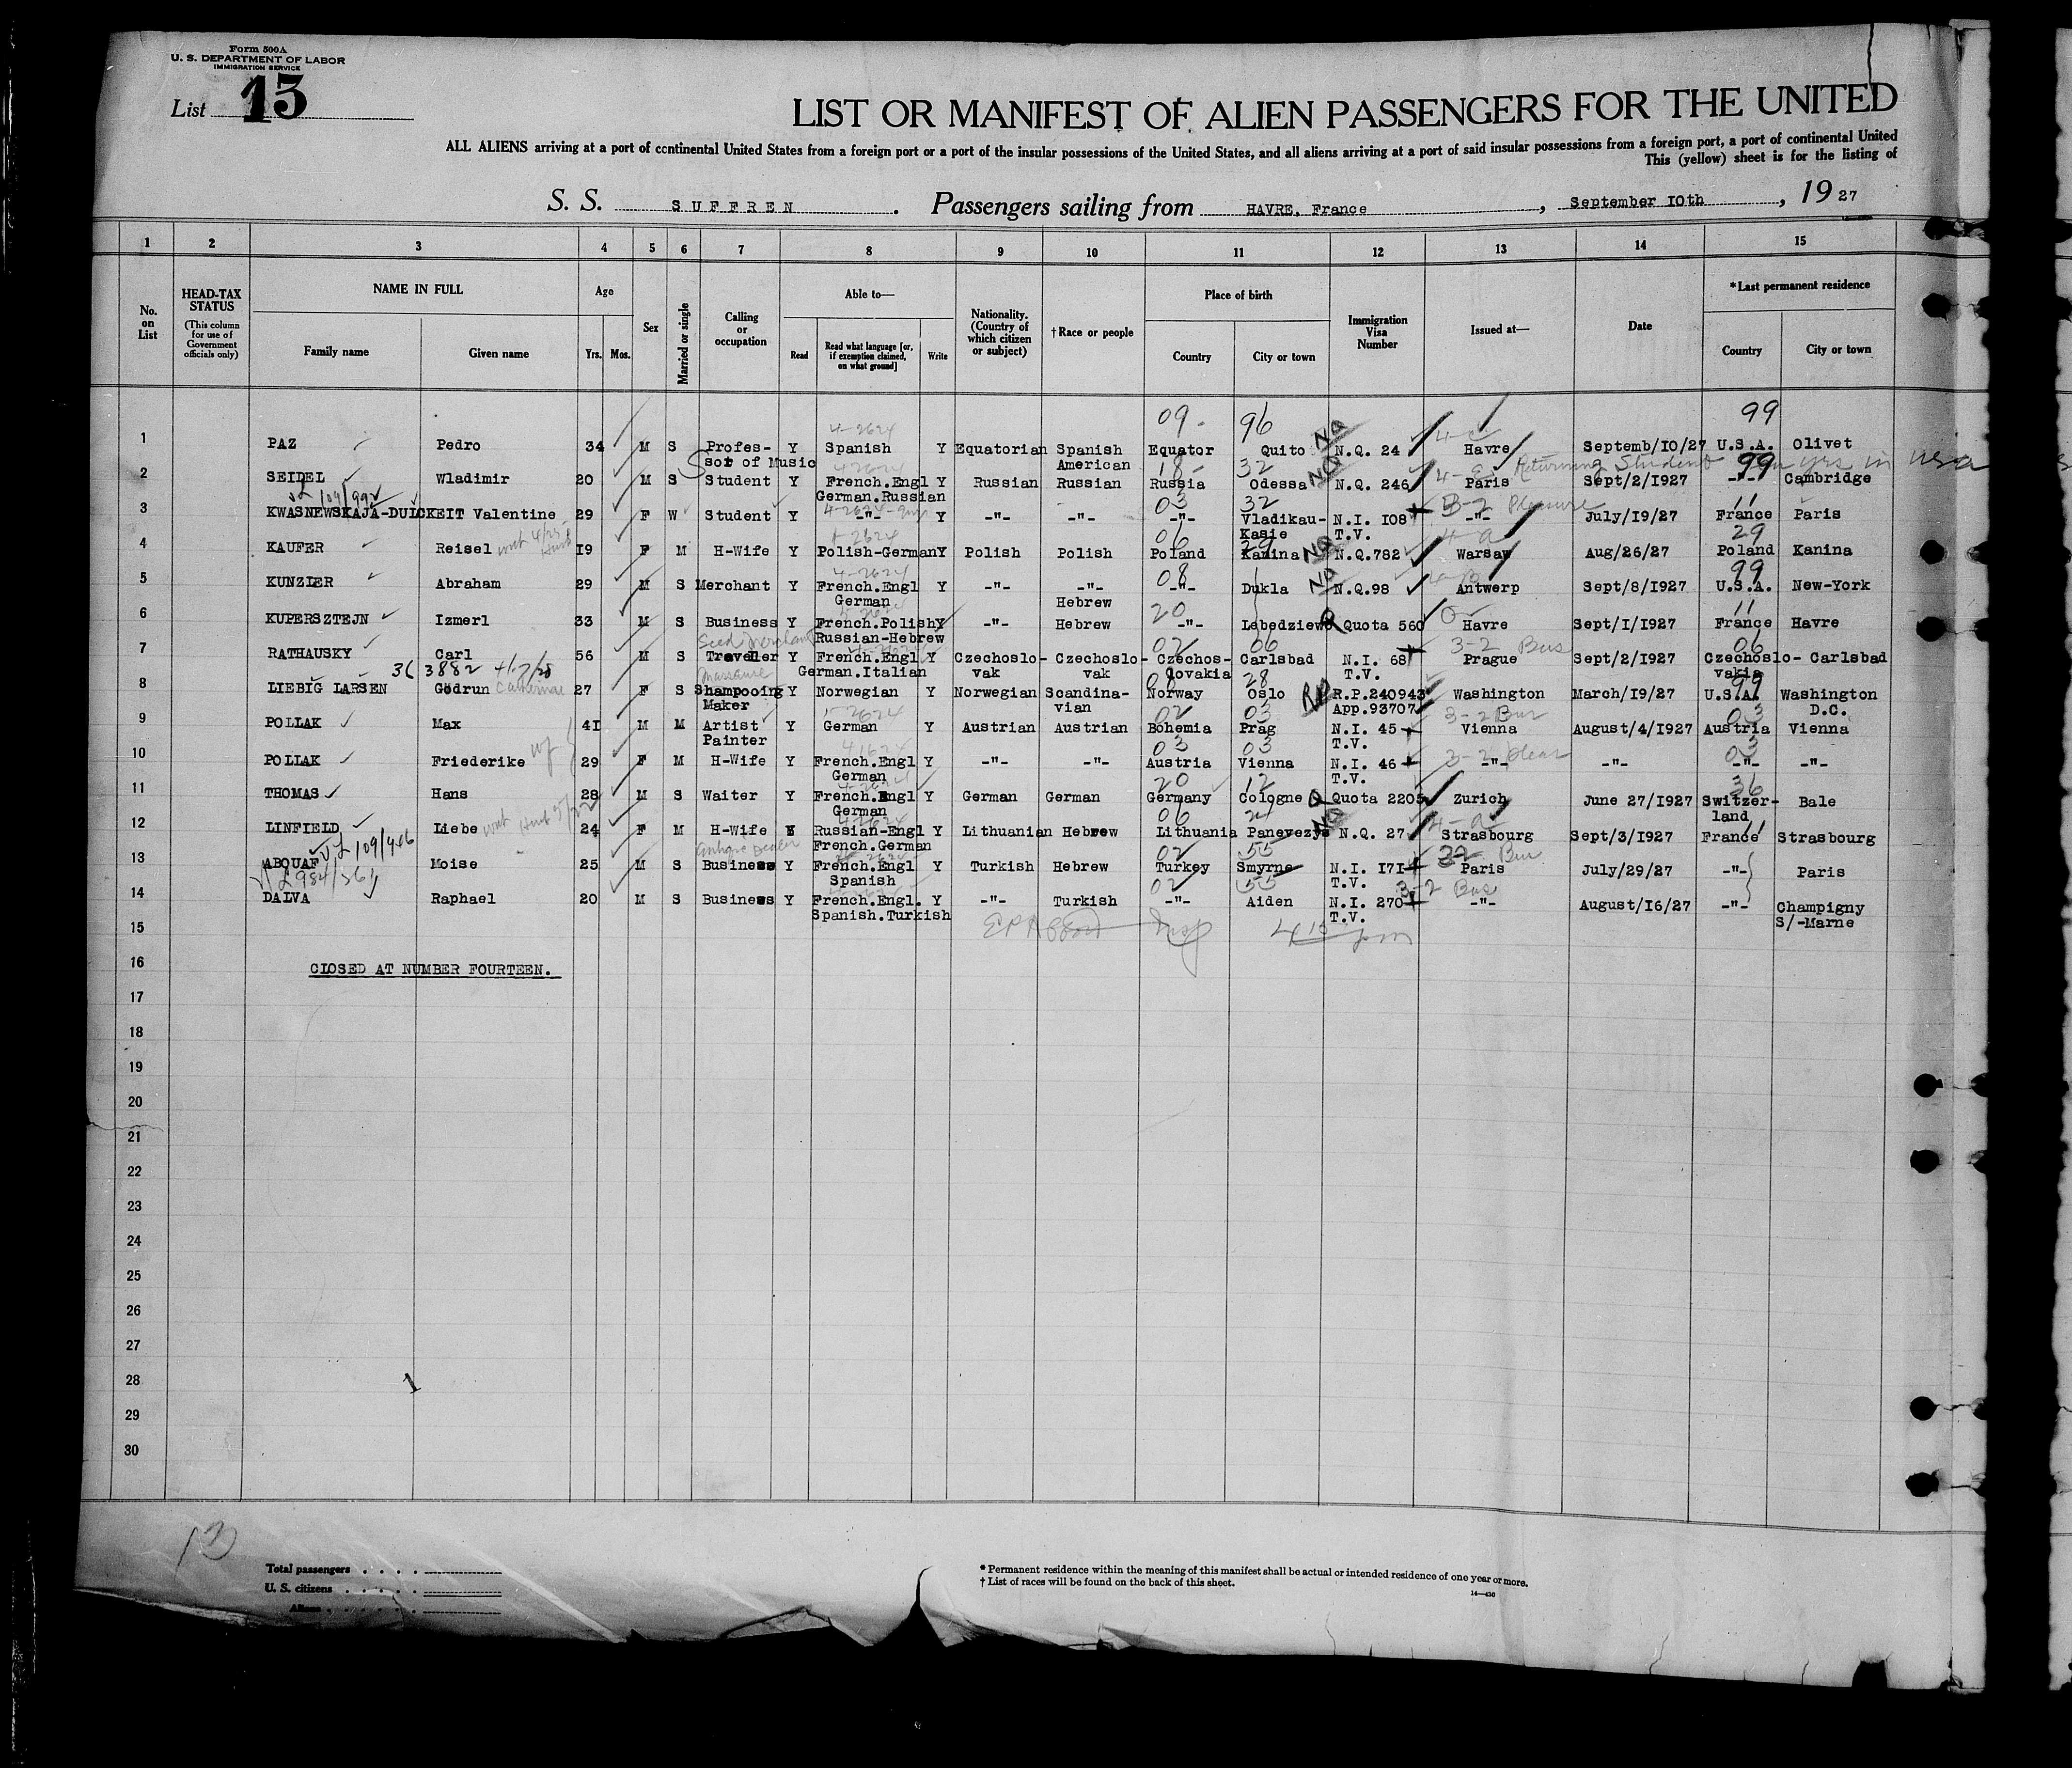 Form 500A
U. S. DEPARTMENT OF LABOR
IMMIGRATION SERVICE
List 15
LIST OR MANIFEST OF ALIEN PASSENGERS FOR THE UNITED
ALL ALIENS arriving at a port of continental United States from a foreign port or a port of the insular possessions of the United States, and all aliens arriving at a port of said insular possessions from a foreign port, a port of continental United
This (yellow) sheet is for the listing of
S. S. SUFFREN . Passengers sailing from HAVRE, France , September I0th , 19 27
1 2 3 4 5 6 7 8 9 10 11 12 13 14 15
No. on List
HEAD-TAX STATUS (This column for use of Government officials only)
NAME IN FULL Family name Given name
Age Yrs. Mos.
Sex
Married or single
Calling or occupation
Able to— Read Read what language [or, if exemption claimed, on what ground] Write
Nationality. (Country of which citizen or subject)
†Race or people
Place of birth Country City or town
Immigration Visa Number
Issued at—
Date
*Last permanent residence Country City or town
09 - 96 99
4-2624 NQ
1 PAZ Pedro 34 M S Profes- Y Spanish Y Equatorian Spanish Equator Quito N.Q. 24 Havre Septemb/10/27 U.S.A. Olivet
sor of Music American
18- 32 Returning Student 99
2 SEIDEL Wladimir 20 M S Student Y French.Engl Y Russian Russian Russia Odessa N.Q. 246 Paris Sept/2/I927 -"- Cambridge
German.Russian
03 32 3-2 Pleasure 11
3 KWASNEWSKAJA-DUICKEIT Valentine 29 F W Student Y -"- Y -"- -"- -"- Vladikau- N.I. I08 -"- July/I9/27 France Paris
Kasie T.V.
06 29 4-a 29
4 KAUFER Reisel I9 F M H-Wife Y Polish-German Y Polish Polish Poland Kanina N.Q.782 Warsaw Aug/26/27 Poland Kanina
4-2624 08 NQ 99
5 KUNZIER Abraham 29 M S Merchant Y French.Engl Y -"- -"- -"- Dukla N.Q.98 Antwerp Sept/8/I927 U.S.A. New-York
German Hebrew
20 11
6 KUPERSZTEJN Izmerl 33 M S Business Y French.Polish Y -"- Hebrew -"- Lebedziewo Quota 560 Havre Sept/I/I927 France Havre
Seed Merchant Russian-Hebrew
02 06 3-2 Bus 06
7 RATHAUSKY Carl 56 M S Traveller Y French.Engl Y Czechoslo- Czechoslo- Czechos- Carlsbad N.I. 68 Prague Sept/2/I927 Czechoslo- Carlsbad
36 3882 4/17/28 German.Italian vak vak lovakia T.V. vakia
28 99
8 LIEBIG LARSEN Gödrun 27 F S Shampooing Y Norwegian Y Norwegian Scandina- Norway Oslo R.P.240943 Washington March/I9/27 U.S.A. Washington
Maker vian App.93707 D.C.
02 03 3-2 Bus 03
9 POLLAK Max 4I M M Artist Y German Y Austrian Austrian Bohemia Prag N.I. 45 Vienna August/4/I927 Austria Vienna
Painter T.V.
wf 03 03 3-2 Pleas 03
10 POLLAK Friederike 29 F M H-Wife Y French.Engl Y -"- -"- Austria Vienna N.I. 46 -"- -"- -"- -"-
German T.V.
20 12 36
11 THOMAS Hans 28 M S Waiter Y French.Engl Y German German Germany Cologne Quota 2205 Zurich June 27/I927 Switzer- Bale
German land
06 4-a 11
12 LINFIELD Liebe 24 F M H-Wife Y Russian-Engl Y Lithuanian Hebrew Lithuania Panevezys N.Q. 27 Strasbourg Sept/3/I927 France Strasbourg
French.German
109/466 Antique Dealer 02 55 Bus
13 ABOUAF Moise 25 M S Business Y French.Engl Y Turkish Hebrew Turkey Smyrne N.I. I7I Paris July/29/27 -"- Paris
Spanish T.V.
02 55 3-2 Bus
14 DALVA Raphael 20 M S Business Y French.Engl. Y -"- Turkish -"- Aiden N.I. 270 -"- August/I6/27 -"- Champigny
Spanish.Turkish T.V. S/-Marne
15
16 CLOSED AT NUMBER FOURTEEN.
17
18
19
20
21
22
23
24
25
26
27
28
29
30
Total passengers
U. S. citizens
Aliens
* Permanent residence within the meaning of this manifest shall be actual or intended residence of one year or more.
† List of races will be found on the back of this sheet.
14—430